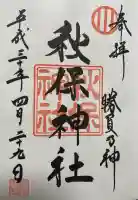 奉拝
勝負の神
秋保神社
平成三十年四月二十九日